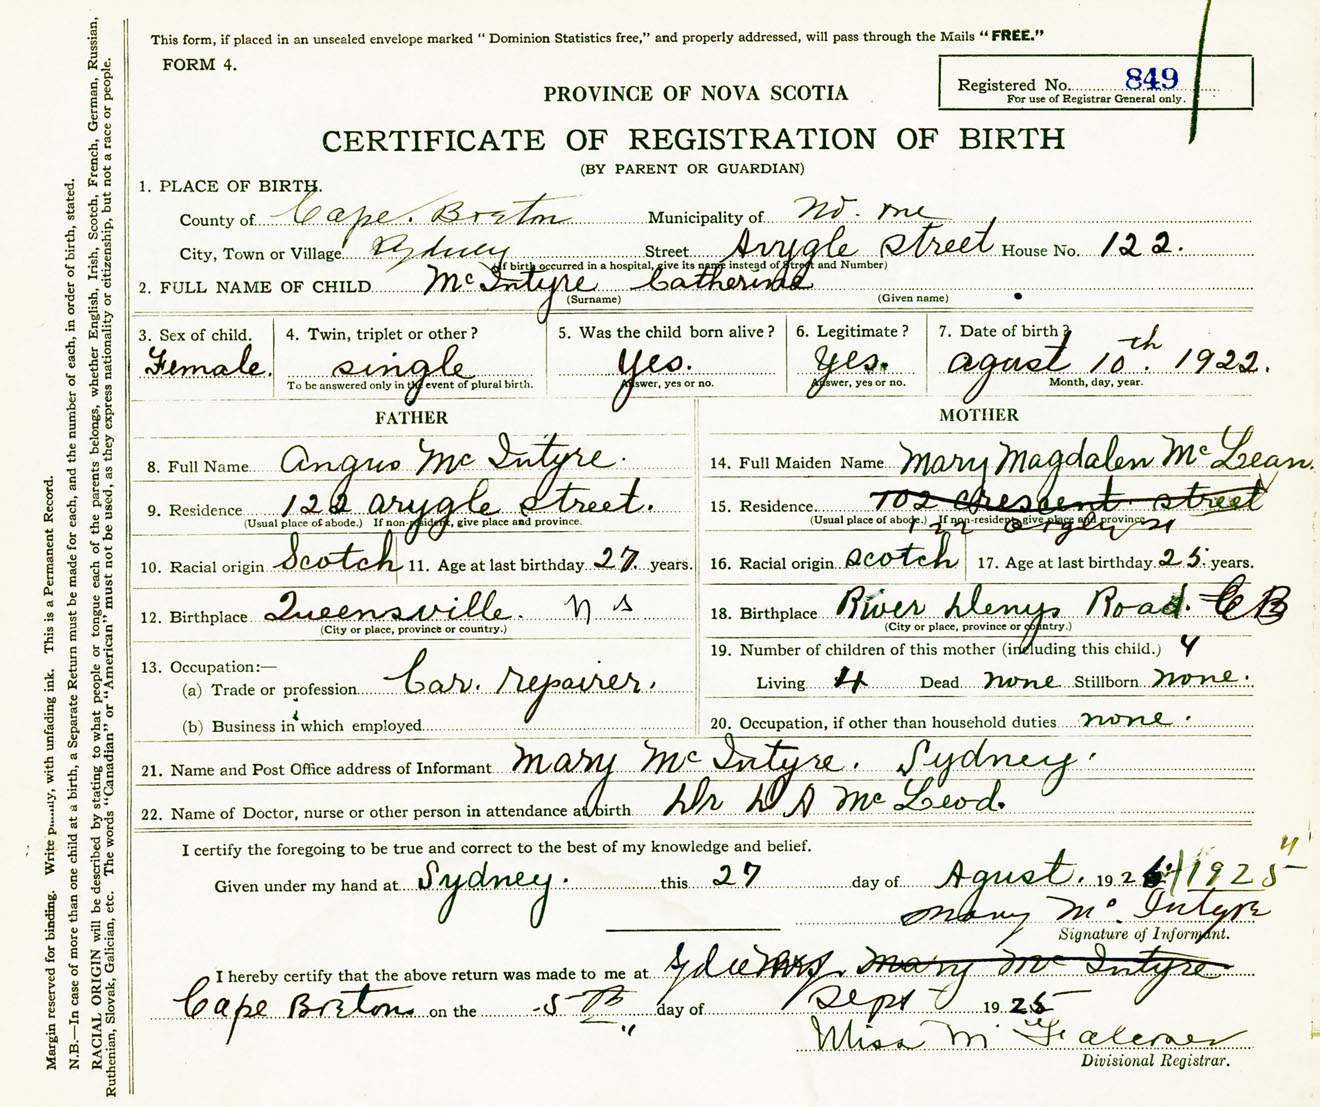 This form, if placed in an unsealed envelope marked "Dominion Statistics free," and properly addressed, will pass through the Mails "FREE."
FORM 4.
Registered No. 849
For use of Registrar General only.
PROVINCE OF NOVA SCOTIA
CERTIFICATE OF REGISTRATION OF BIRTH
(BY PARENT OR GUARDIAN)
1. PLACE OF BIRTH.
County of Cape. Breton Municipality of No. one
City, Town or Village Sydney Street Arygle street House No. 122.
(If birth occurred in a hospital, give its name instead of Street and Number)
2. FULL NAME OF CHILD McIntyre Catherine
(Surname) (Given name)
3. Sex of child. 4. Twin, triplet or other? 5. Was the child born alive? 6. Legitimate? 7. Date of birth?
Female. single Yes. Yes. agust 10th. 1922.
To be answered only in the event of plural birth. Answer, yes or no. Answer, yes or no. Month, day, year.
FATHER MOTHER
8. Full Name Angus McIntyre. 14. Full Maiden Name Mary Magdalen McLean.
9. Residence 122 arygle street. 15. Residence 702 crescent street
(Usual place of abode.) If non-resident, give place and province. (Usual place of abode.) If non-resident, give place and province.
122 Argyle st
10. Racial origin Scotch 11. Age at last birthday 27. years. 16. Racial origin scotch 17. Age at last birthday 25. years.
12. Birthplace Queensville. N S 18. Birthplace River Denys Road. C B
(City or place, province or country.) (City or place, province or country.)
13. Occupation:— 19. Number of children of this mother (including this child.) 4
(a) Trade or profession Car. repairer. Living 4 Dead none Stillborn none.
(b) Business in which employed 20. Occupation, if other than household duties none.
21. Name and Post Office address of Informant Mary McIntyre. Sydney.
22. Name of Doctor, nurse or other person in attendance at birth Dr D A McLeod.
I certify the foregoing to be true and correct to the best of my knowledge and belief.
Given under my hand at Sydney. this 27 day of Agust. 192 1925
Mary McIntyre
Signature of Informant.
I hereby certify that the above return was made to me at Mary McIntyre
Cape Breton on the 5th day of Sept 1925
Miss M Falconer
Divisional Registrar.
Margin reserved for binding. Write plainly, with unfading ink. This is a Permanent Record.
N.B.—In case of more than one child at a birth, a Separate Return must be made for each, and the number of each, in order of birth, stated.
RACIAL ORIGIN will be described by stating to what people or tongue each of the parents belongs, whether English, Irish, Scotch, French, German, Russian,
Ruthenian, Slovak, Galician, etc. The words "Canadian" or "American" must not be used, as they express nationality or citizenship, but not a race or people.